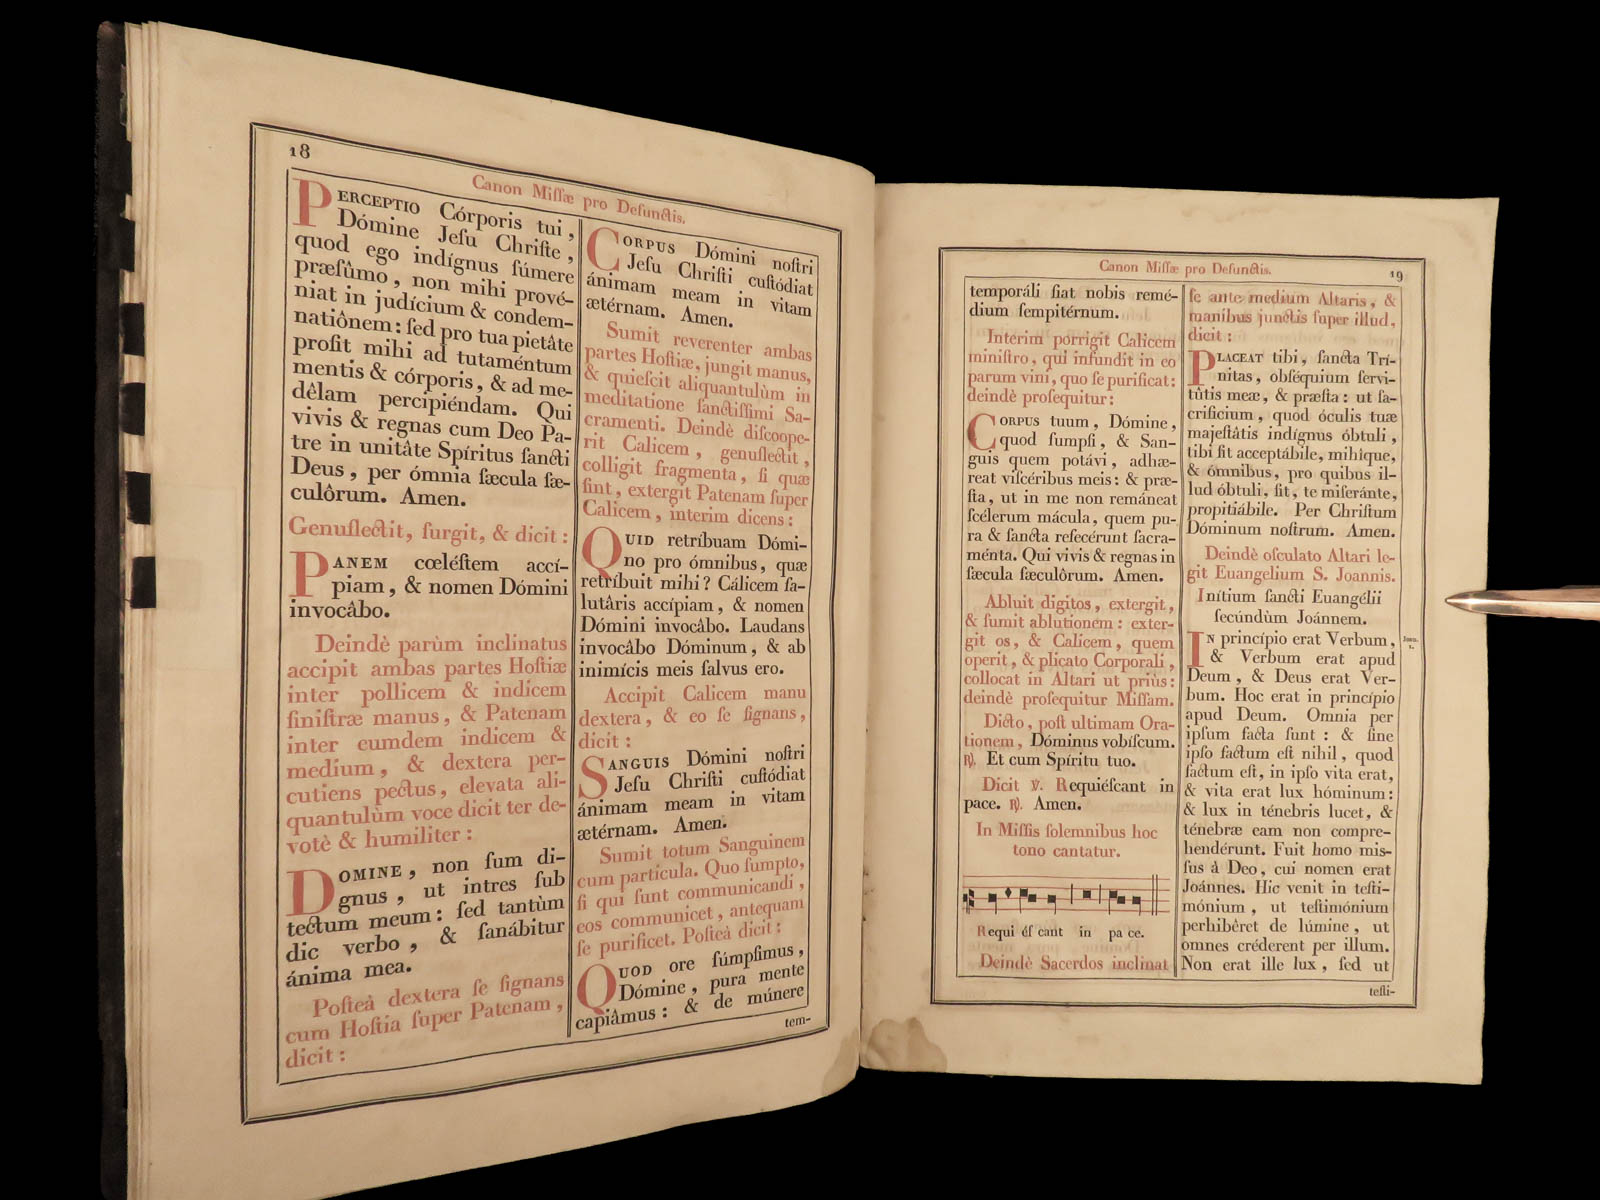 18
Canon Miſſæ pro Defunctis.
PERCEPTIO Córporis tui,
Dómine Jeſu Chriſte,
quod ego indígnus ſúmere
præſûmo, non mihi prové-
niat in judícium & condem-
natiônem: ſed pro tua pietâte
proſit mihi ad tutaméntum
mentis & córporis, & ad me-
dêlam percipiéndam. Qui
vivis & regnas cum Deo Pa-
tre in unitâte Spíritus ſancti
Deus, per ómnia ſæcula ſæ-
culôrum. Amen.
Genuflectit, ſurgit, & dicit:
PANEM cœléſtem accí-
piam, & nomen Dómini
invocâbo.
Deindè parùm inclinatus
accipit ambas partes Hoſtiæ
inter pollicem & indicem
ſiniſtræ manus, & Patenam
inter eumdem indicem &
medium, & dextera per-
cutiens pectus, elevata ali-
quantulùm voce dicit ter de-
votè & humiliter:
DOMINE, non ſum di-
gnus, ut intres ſub
tectum meum: ſed tantùm
dic verbo, & ſanábitur
ánima mea.
Poſteà dextera ſe ſignans
cum Hoſtia ſuper Patenam,
dicit:
CORPUS Dómini noſtri
Jeſu Chriſti cuſtódiat
ánimam meam in vitam
ætérnam. Amen.
Sumit reverenter ambas
partes Hoſtiæ, jungit manus,
& quieſcit aliquantulùm in
meditatione ſanctiſſimi Sa-
cramenti. Deindè diſcoope-
rit Calicem, genuflectit,
colligit fragmenta, ſi quæ
ſint, extergit Patenam ſuper
Calicem, interim dicens:
QUID retríbuam Dómi-
no pro ómnibus, quæ
retríbuit mihi? Cálicem ſa-
lutâris accípiam, & nomen
Dómini invocâbo. Laudans
invocâbo Dóminum, & ab
inimícis meis ſalvus ero.
Accipit Calicem manu
dextera, & eo ſe ſignans,
dicit:
SANGUIS Dómini noſtri
Jeſu Chriſti cuſtódiat
ánimam meam in vitam
ætérnam. Amen.
Sumit totum Sanguinem
cum particula. Quo ſumpto,
ſi qui ſunt communicandi,
eos communicet, antequam
ſe purificet. Poſteà dicit:
QUOD ore ſúmpſimus,
Dómine, pura mente
capiâmus: & de múnere
tem-
Canon Miſſæ pro Defunctis.
19
temporáli fiat nobis remé-
dium ſempitérnum.
Interim porrigit Calicem
miniſtro, qui infundit in eo
parum vini, quo ſe purificat:
deindè proſequitur:
CORPUS tuum, Dómine,
quod ſumpſi, & San-
guis quem potávi, adhæ-
reat viſcéribus meis: & præ-
ſta, ut in me non remáneat
ſcélerum mácula, quem pu-
ra & ſancta refecérunt ſacra-
ménta. Qui vivis & regnas in
ſæcula ſæculôrum. Amen.
Abluit digitos, extergit,
& ſumit ablutionem: exter-
git os, & Calicem, quem
operit, & plicato Corporali,
collocat in Altari ut priùs:
deindè proſequitur Miſſam.
Dicto, poſt ultimam Ora-
tionem, Dóminus vobíſcum.
℟. Et cum Spíritu tuo.
Dicit ℣. Requiéſcant in
pace. ℟. Amen.
In Miſſis ſolemnibus hoc
tono cantatur.
Requi éſ cant in pa ce.
Deindè Sacerdos inclinat
ſe ante medium Altaris, &
manibus junctis ſuper illud,
dicit:
PLACEAT tibi, ſancta Trí-
nitas, obſéquium ſervi-
tûtis meæ, & præſta: ut ſa-
crifícium, quod óculis tuæ
majeſtâtis indígnus óbtuli,
tibi ſit acceptábile, mihíque,
& ómnibus, pro quibus il-
lud óbtuli, ſit, te miſeránte,
propitiábile. Per Chriſtum
Dóminum noſtrum. Amen.
Deindè oſculato Altari le-
git Euangelium S. Joannis.
Inítium ſancti Euangélii
ſecúndùm Joánnem.
IN princípio erat Verbum,
Joan.
1.
& Verbum erat apud
Deum, & Deus erat Ver-
bum. Hoc erat in princípio
apud Deum. Omnia per
ipſum facta ſunt: & ſine
ipſo factum eſt nihil, quod
factum eſt, in ipſo vita erat,
& vita erat lux hóminum:
& lux in ténebris lucet, &
ténebræ eam non compre-
hendérunt. Fuit homo miſ-
ſus à Deo, cui nomen erat
Joánnes. Hic venit in teſti-
mónium, ut teſtimónium
perhibêret de lúmine, ut
omnes créderent per illum.
Non erat ille lux, ſed ut
teſti-